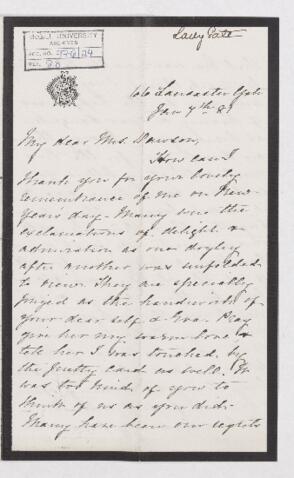 McGILL UNIVERSITY
ARCHIVES
ACC. NO.
REF.
Lady Tate
66 Lancaster Gate
Jan 7th 8
My dear Mrs. Dawson,
How can I
thank you for your lovely
remembrance of me on New
Years day. Many were the
exclamations of delight &
admiration as one doyley
after another was unfolded
to view. They are specially
prized as the handiwork of
your dear self & Eva. Pray
give her my warm love &
tell her I was touched by
the pretty card as well. It
was too kind of you to
think of us as you did.
Many have been our regrets